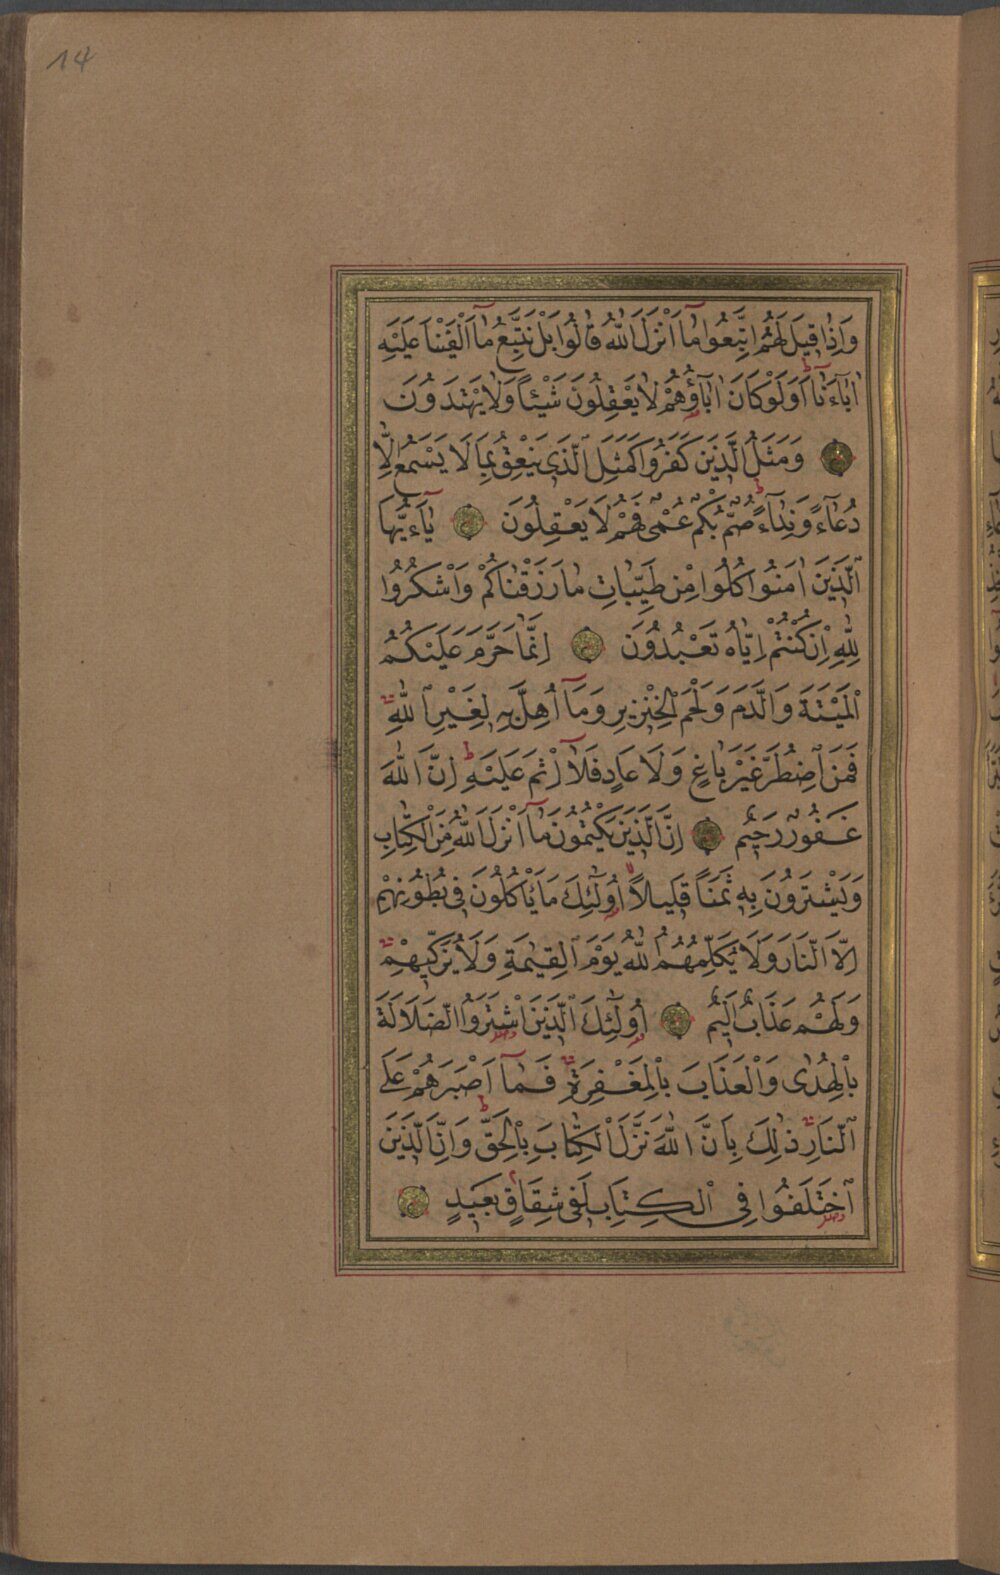 14
وَاِذَا قِيلَ لَهُمُ اتَّبِعُوا مَٓا اَنْزَلَ اللّٰهُ قَالُوا بَلْ نَتَّبِعُ مَٓا اَلْفَيْنَا عَلَيْهِ
اٰبَٓاءَنَٓا اَوَلَوْ كَانَ اٰبَٓاؤُهُمْ لَا يَعْقِلُونَ شَيْـًٔا وَلَا يَهْتَدُونَ
وَمَثَلُ الَّذِينَ كَفَرُوا كَمَثَلِ الَّذِي يَنْعِقُ بِمَا لَا يَسْمَعُ اِلَّا
دُعَٓاءً وَنِدَٓاءً صُمٌّ بُكْمٌ عُمْيٌ فَهُمْ لَا يَعْقِلُونَ يَٓاءَيُّهَا
الَّذِينَ اٰمَنُوا كُلُوا مِنْ طَيِّبَاتِ مَا رَزَقْنَاكُمْ وَاشْكُرُوا
لِلّٰهِ اِنْ كُنْتُمْ اِيَّاهُ تَعْبُدُونَ اِنَّمَا حَرَّمَ عَلَيْكُمُ
الْمَيْتَةَ وَالدَّمَ وَلَحْمَ الْخِنْزِيرِ وَمَٓا اُهِلَّ بِهِ لِغَيْرِ اللّٰهِ
فَمَنِ اضْطُرَّ غَيْرَ بَاغٍ وَلَا عَادٍ فَلَٓا اِثْمَ عَلَيْهِ اِنَّ اللّٰهَ
غَفُورٌ رَحِيمٌ اِنَّ الَّذِينَ يَكْتُمُونَ مَٓا اَنْزَلَ اللّٰهُ مِنَ الْكِتَابِ
وَيَشْتَرُونَ بِهِ ثَمَنًا قَلِيلًا اُولٰٓئِكَ مَا يَاْكُلُونَ فِي بُطُونِهِمْ
اِلَّا النَّارَ وَلَا يُكَلِّمُهُمُ اللّٰهُ يَوْمَ الْقِيٰمَةِ وَلَا يُزَكِّيهِمْ
وَلَهُمْ عَذَابٌ اَلِيمٌ اُولٰٓئِكَ الَّذِينَ اشْتَرَوُا الضَّلَالَةَ
بِالْهُدٰى وَالْعَذَابَ بِالْمَغْفِرَةِ فَمَٓا اَصْبَرَهُمْ عَلَى
النَّارِ ذٰلِكَ بِاَنَّ اللّٰهَ نَزَّلَ الْكِتَابَ بِالْحَقِّ وَاِنَّ الَّذِينَ
اخْتَلَفُوا فِي الْكِتَابِ لَفِي شِقَاقٍ بَعِيدٍ